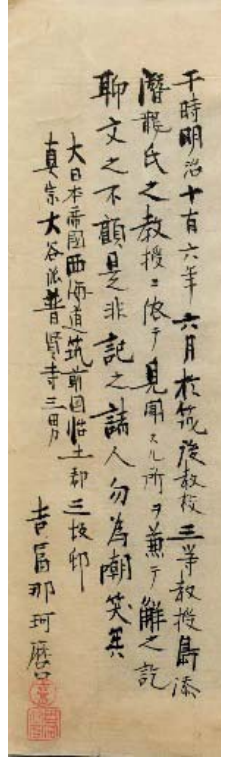 于時明治十有六年六月於筑後教校三等教授島添
潛龍氏之教授ニ依テ見聞スル所ヲ兼テ解之訖
聊文之不顧是非記之諸人勿為潮笑矣
大日本帝國西海道筑前国怡土郡三坂邨
真宗大谷派普賢寺三男
吉冨那珂麿